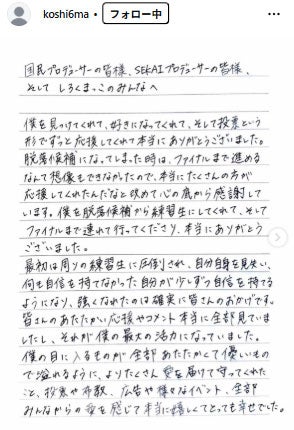 koshi6ma
フォロー中
国民プロデューサーの皆様、SEKAIプロデューサーの皆様、
そして しろくまっこのみんなへ
僕を見つけてくれて、好きになってくれて、そして投票という
形でずっと応援してくれて本当にありがとうございました。
脱落候補になってしまった時は、ファイナルまで進める
なんて想像もできなかったので、本当にたくさんの方が
応援してくれたんだなと改めて心の底から感謝して
います。僕を脱落候補から練習生にしてくれて、そして
ファイナルまで連れて行ってくださり、本当にありがとう
ございました。
最初は周りの練習生に圧倒され、自分自身を見失い、
何も自信を持てなかった自分が少しずつ自信を持てる
ようになり、強くなれたのは確実に皆さんのおかげです。
皆さんのあたたかい応援やコメント本当に全部見ていま
したし、それが僕の最大の活力になっていました。
僕の目に入るものが全部あたたかくて優しいもの
で溢れるように、よりたくさん愛を届けて守ってくれた
こと、投票や布教、広告や様々なイベント、全部
みんなからの愛を感じて本当に嬉しくてとっても幸せでした。